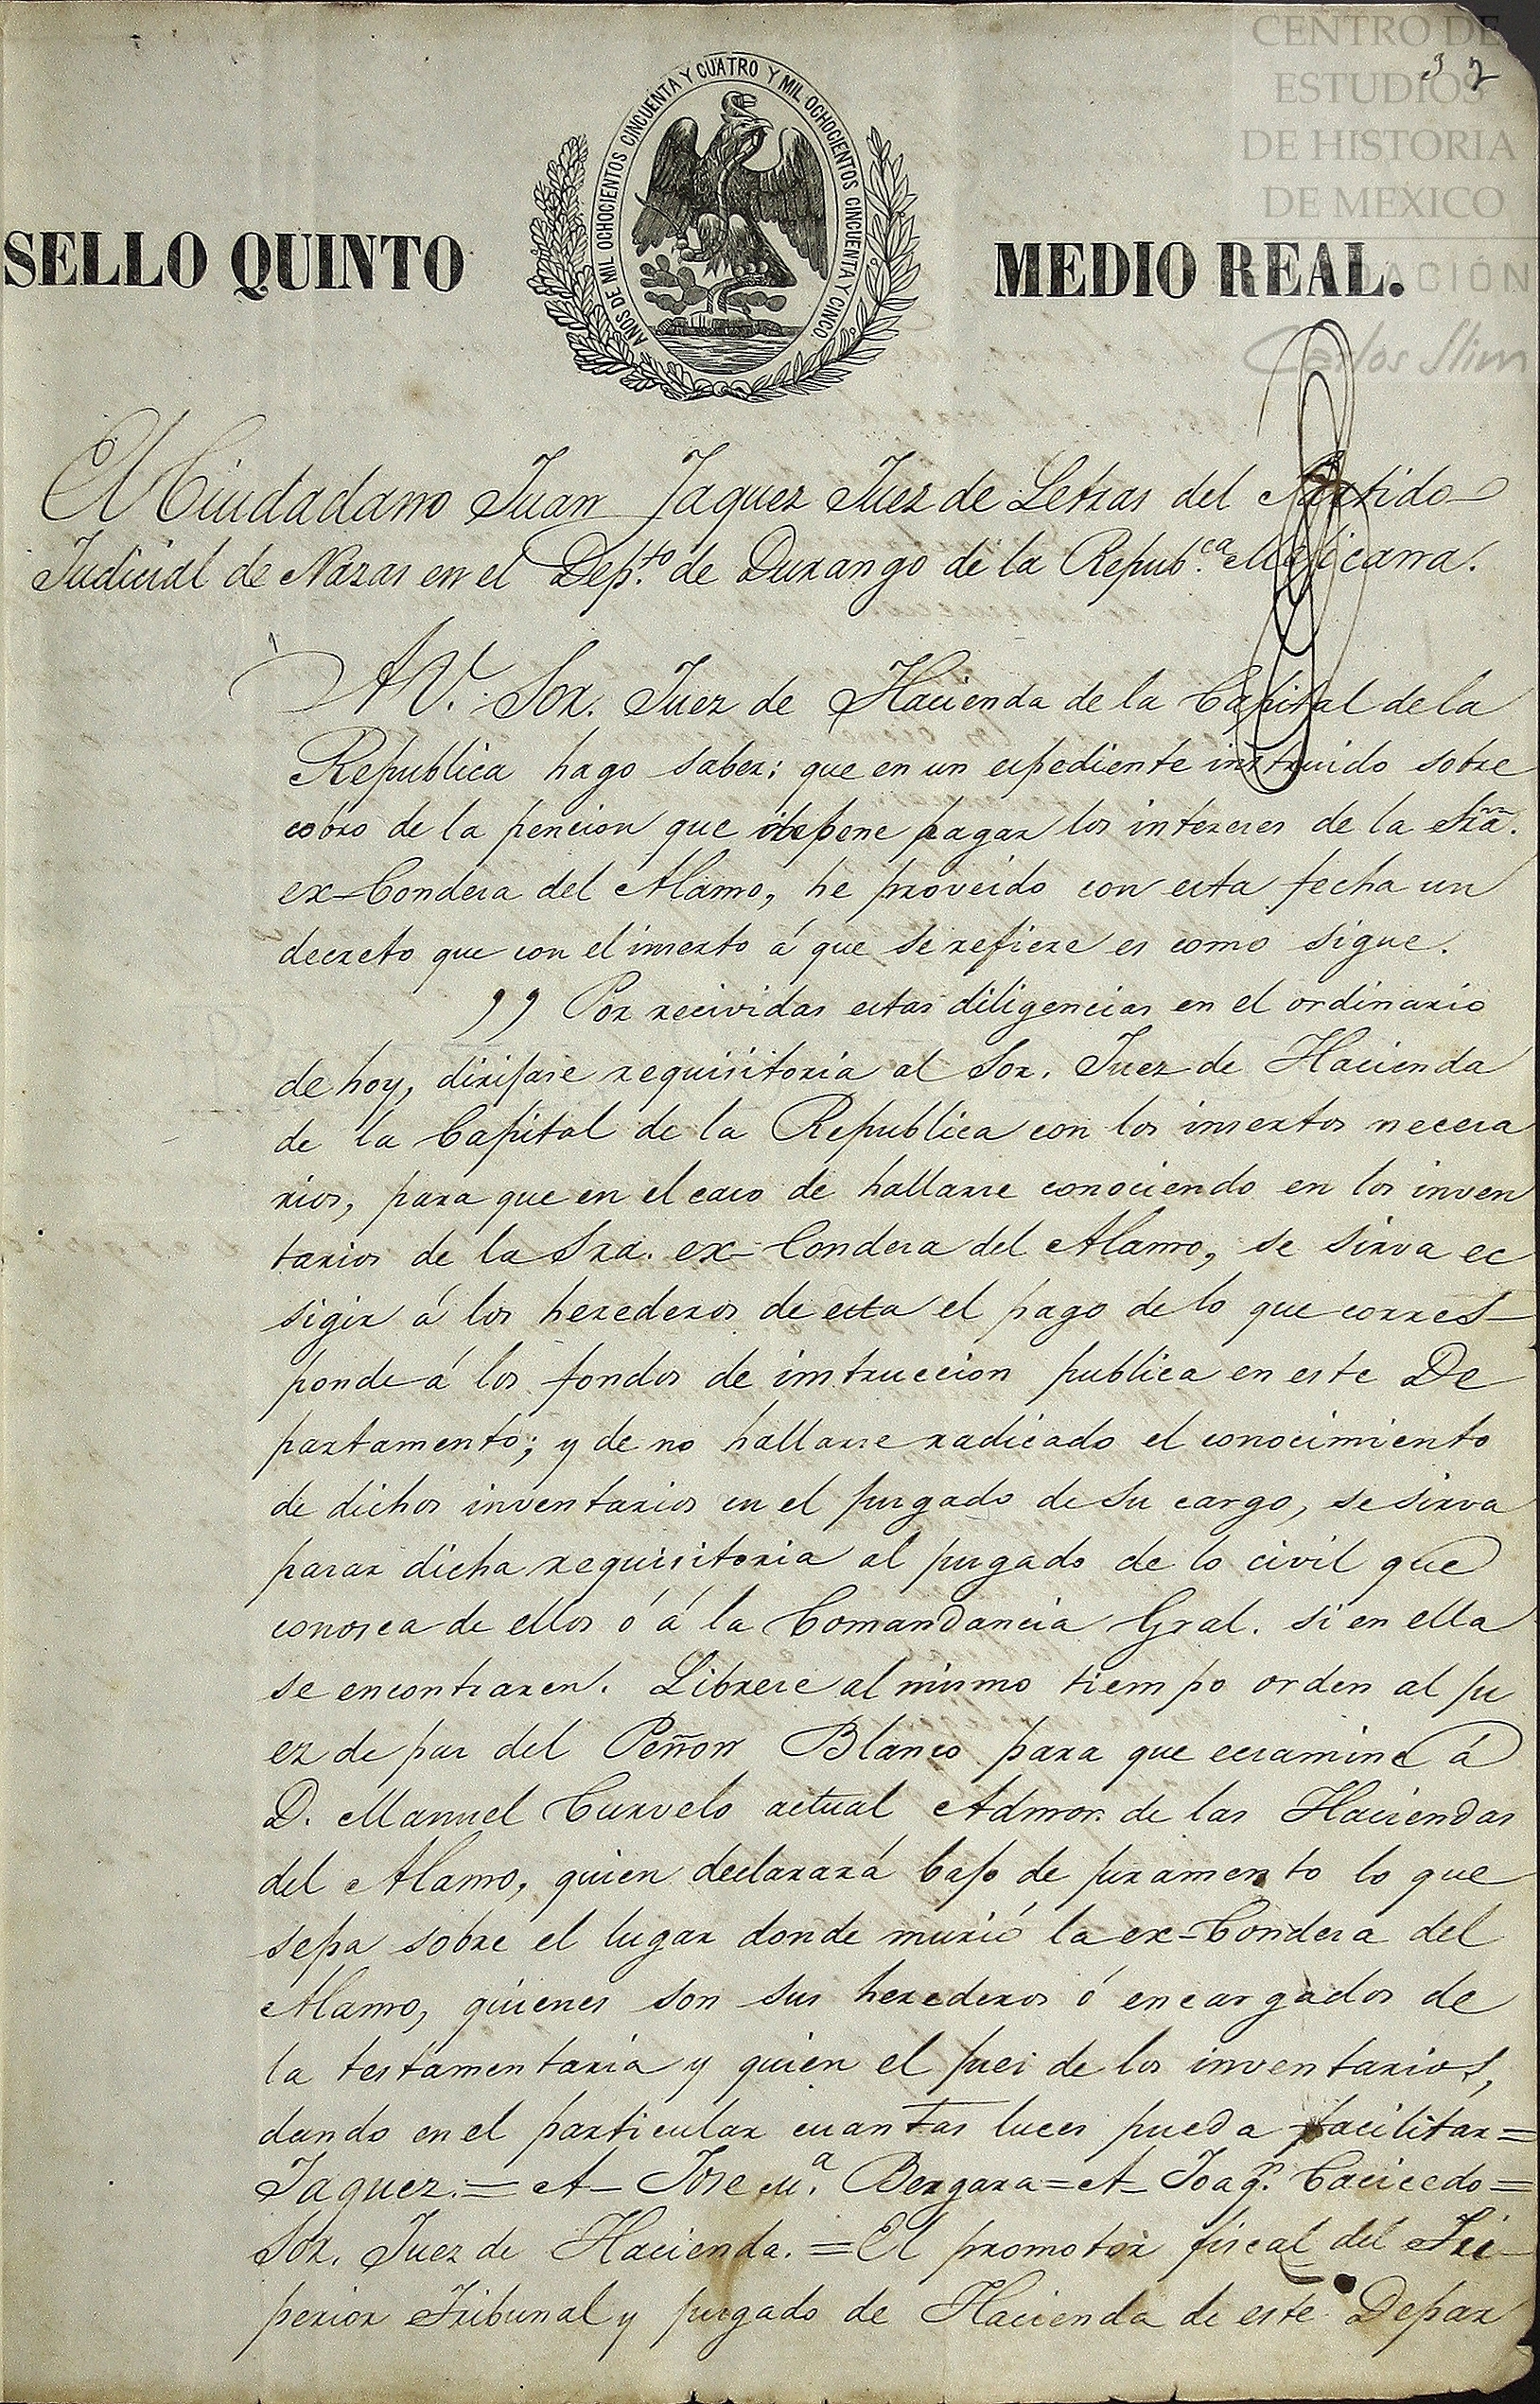 CENTRO DE
ESTUDIOS
DE HISTORIA
DE MEXICO
Carlos Slim
32
AÑOS DE MIL OCHOCIENTOS CINCUENTA Y CUATRO Y MIL OCHOCIENTOS CINCUENTA Y CINCO.
SELLO QUINTO MEDIO REAL.
El Ciudadano Juan Jaquez Juez de Letras del Partido
Judicial de Nazas en el Dep.to de Durango de la Repub.ca Mejicana.
A V. Sor. Juez de Hacienda de la Capital de la
Republica hago saber: que en un espediente instruido sobre
cobro de la pencion que pagar los intereses de la Sra.
ex-Condesa del Alamo, he proveido con esta fecha un
decreto que con el inserto á que se refiere es como sigue.
" Por recividas estas diligencias en el ordinario
de hoy, dirijase requisitoria al Sor. Juez de Hacienda
de la Capital de la Republica con los insertos necesa
rios, para que en el caso de hallarse conociendo en los inven
tarios de la Sra. ex-Condesa del Alamo, se sirva ec
sigir á los herederos de esta el pago de lo que corres-
ponde á los fondos de instruccion publica en este De
partamento; y de no hallarse radicado el conocimiento
de dichos inventarios en el jusgado de su cargo, se sirva
pasar dicha requisitoria al jusgado de lo civil que
conosca de ellos ó á la Comandancia Gral. si en ella
se encontraren. Librese al mismo tiempo orden al ju
ez de pas del Peñon Blanco para que ecsamine á
D. Manuel Curvelo actual Admor. de las Haciendas
del Alamo, quien declarará bajo de juramento lo que
sepa sobre el lugar donde murió la ex-Condesa del
Alamo, quienes son sus herederos ó encargados de
la testamentaria y quien el juez de los inventarios,
dando en el particular cuantas luces pueda facilitar=
Jaquez.= A- Jose M.a Bergara= A- Joaq.n Caicedo=
Sor. Juez de Hacienda.= El promotor fiscal del Su-
perior Tribunal y jusgado de Hacienda de este Depar